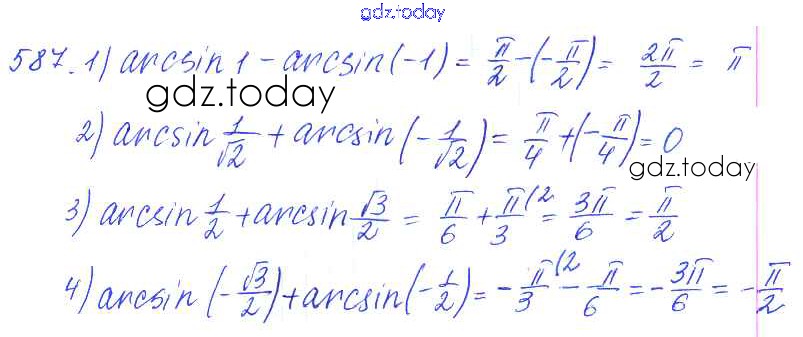 gdz.today
587. 1) arcsin 1 - arcsin(-1) = π/2 - (-π/2) = 2π/2 = π
gdz.today
2) arcsin 1/√2 + arcsin (-1/√2) = π/4 + (-π/4) = 0
gdz.today
3) arcsin 1/2 + arcsin √3/2 = π/6 + π/3 (2 = 3π/6 = π/2
4) arcsin (-√3/2) + arcsin (-1/2) = -π/3 (2 - π/6 = -3π/6 = -π/2